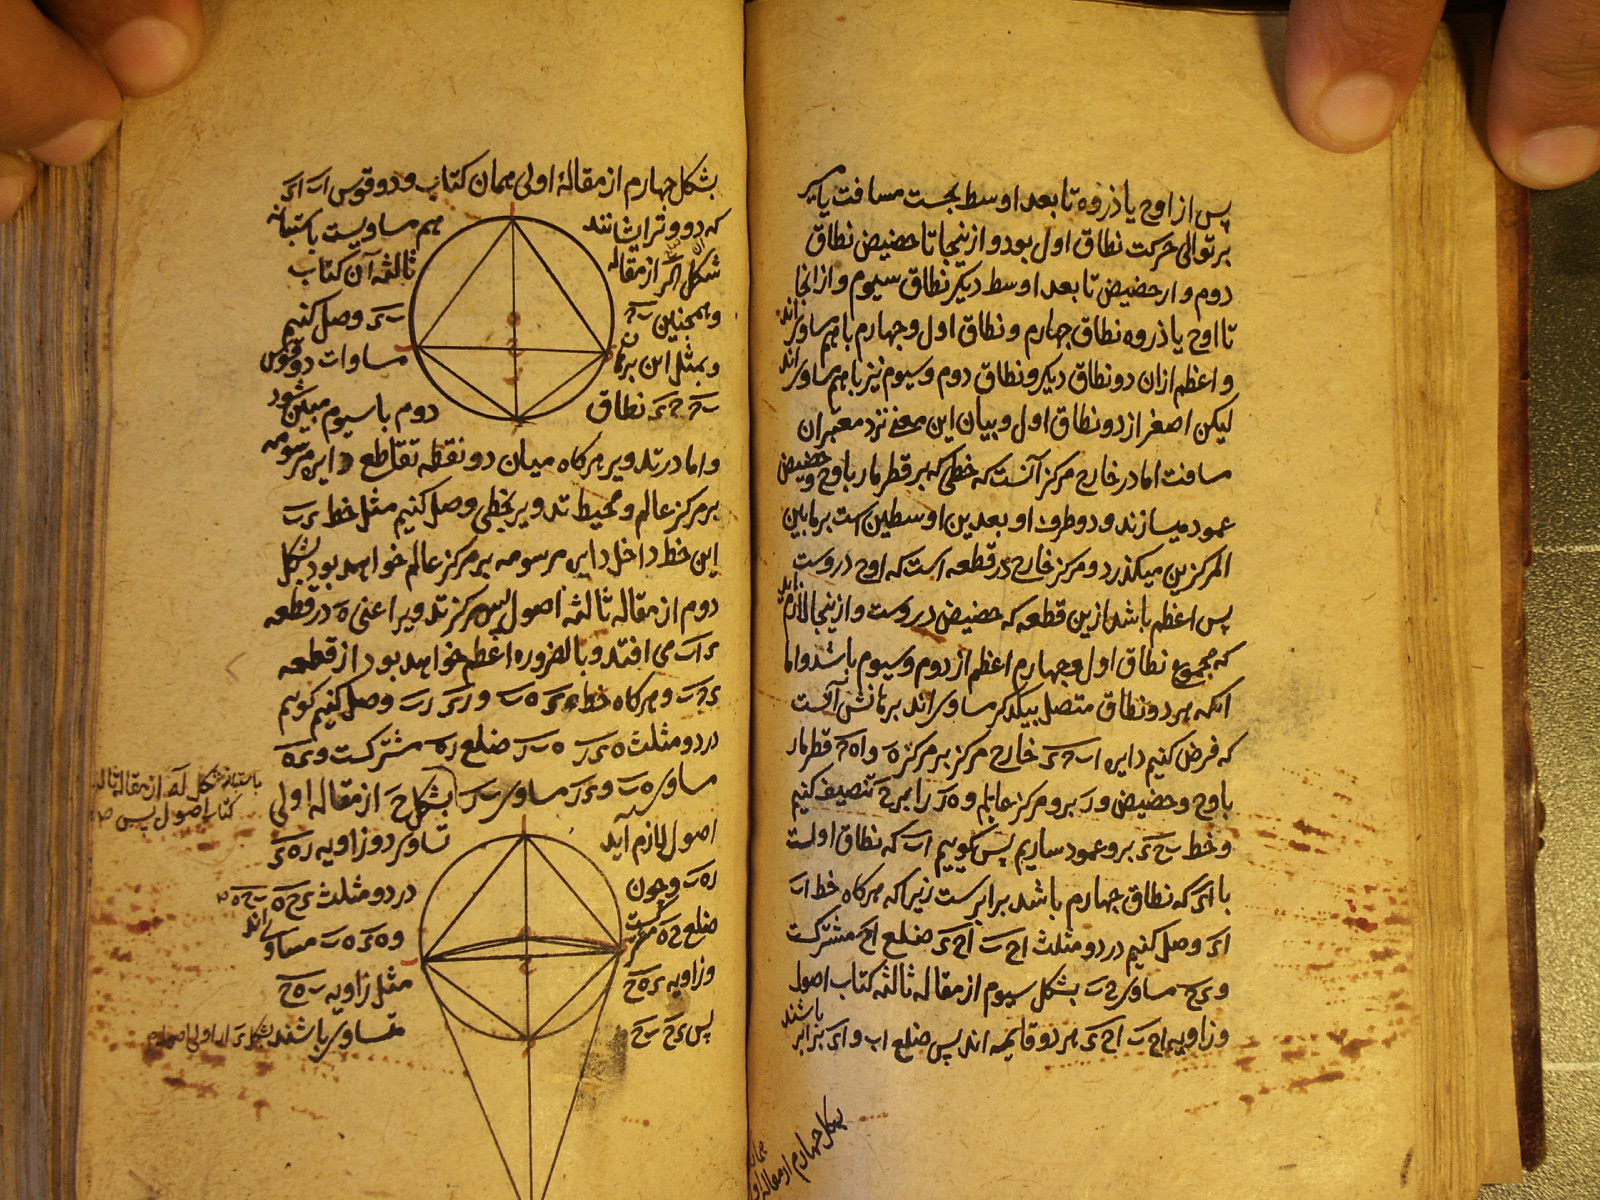 پس از اوج یا ذروه تا بعد اوسط بحسب مسافت یا مسیر
بر توالی حرکت نطاق اول بود و از ینجا تا حضیض نطاق
دوم و از حضیض تا بعد اوسط دیکر نطاق سیوم و از انجا
تا اوج یا ذروه نطاق چهارم و نطاق اول و چهارم با هم مساوی‌اند
و اعظم از ان دو نطاق دیکر و نطاق دوم و سیوم نیز با هم مساوی‌اند
لیکن اصغر از دو نطاق اول و بیان این معنی نزد معتبران
مسافت اما در خارج مرکز آنست که خطی که بر قطر مار باوج و حضیض
عمود میسازند و دو طرف او بعدین اوسطین است بر مابین
المرکزین میکذرد و مرکز خارج در قطعه است که اوج دروست
پس اعظم باشد ازین قطعه که حضیض دروست و ازینجا لازم آید
که مجموع نطاق اول و چهارم اعظم از دوم و سیوم باشد و اما
انکه هر دو نطاق متصل بیکدکر مساوی اند برهانش آنست
که فرض کنیم دایره اب ح ی خارج مرکز بر مرکز ه و اه ح قطر مار
باوج و حضیض و ر برو مرکز عالم و ه ر را بر ح تنصیف کنیم
و خط ب ح ی برو عمود سازیم پس کوییم اب که نطاق اولست
با ای که نطاق چهارم باشد برابرست زیرا که هرکاه خط اب
ای وصل کنیم در دو مثلث اح ب اح ی ضلع اح مشترکست
و ی ح مساوی ح ب بشکل سیوم از مقاله ثالثه کتاب اصول
و زاویه اح ب اح ی هر دو قایمه اند پس ضلع اب و ای برابر باشند
بشکل چهارم از مقاله
بشکل چهارم از مقالهٔ اولی همان کتاب و دو قوس اب ای
که دو وتر ایشانند هم مساویست باستبانه
شکل از مقاله ثالثه آن کتاب
و همچنین ب ح ی وصل کنیم
و بمثل این برهان مساوات دو قوس
ب ح ح ی نطاق دوم با سیوم مبین شود
و اما در تدویر هرکاه میان دو نقطه تقاطع دایره مرسومه
بر مرکز عالم و محیط تدویر بخطی وصل کنیم مثل خط ی ب
این خط داخل دایره مرسومه بر مرکز عالم خواهد بود بشکل
دوم از مقاله ثالثه اصول پس مرکز تدویر اعنی ه در قطعه
ی اب می افتد و بالضروره اعظم خواهد بود از قطعه
ی ح ب و هرکاه خط ی ه ب و ر ی ر ب وصل کنیم کوییم
در دو مثلث ه ی ر ه ب ر ضلع ر ه مشترکست و ی ه
مساوی ه ب و ی ر مساوی ب ر بشکل ح از مقاله اولی
اصول لازم آید تساوی دو زاویه ر ه ی
ر ه ب و چون در دو مثلث ی ح ه ب ح ه
ضلع ح ه مشترکست و ه ی ه ب مساوی‌اند
و زاویه ی ه ح مثل زاویه ب ه ح
پس ی ح ب ح متساوی باشند بشکل
کتاب اصول پس